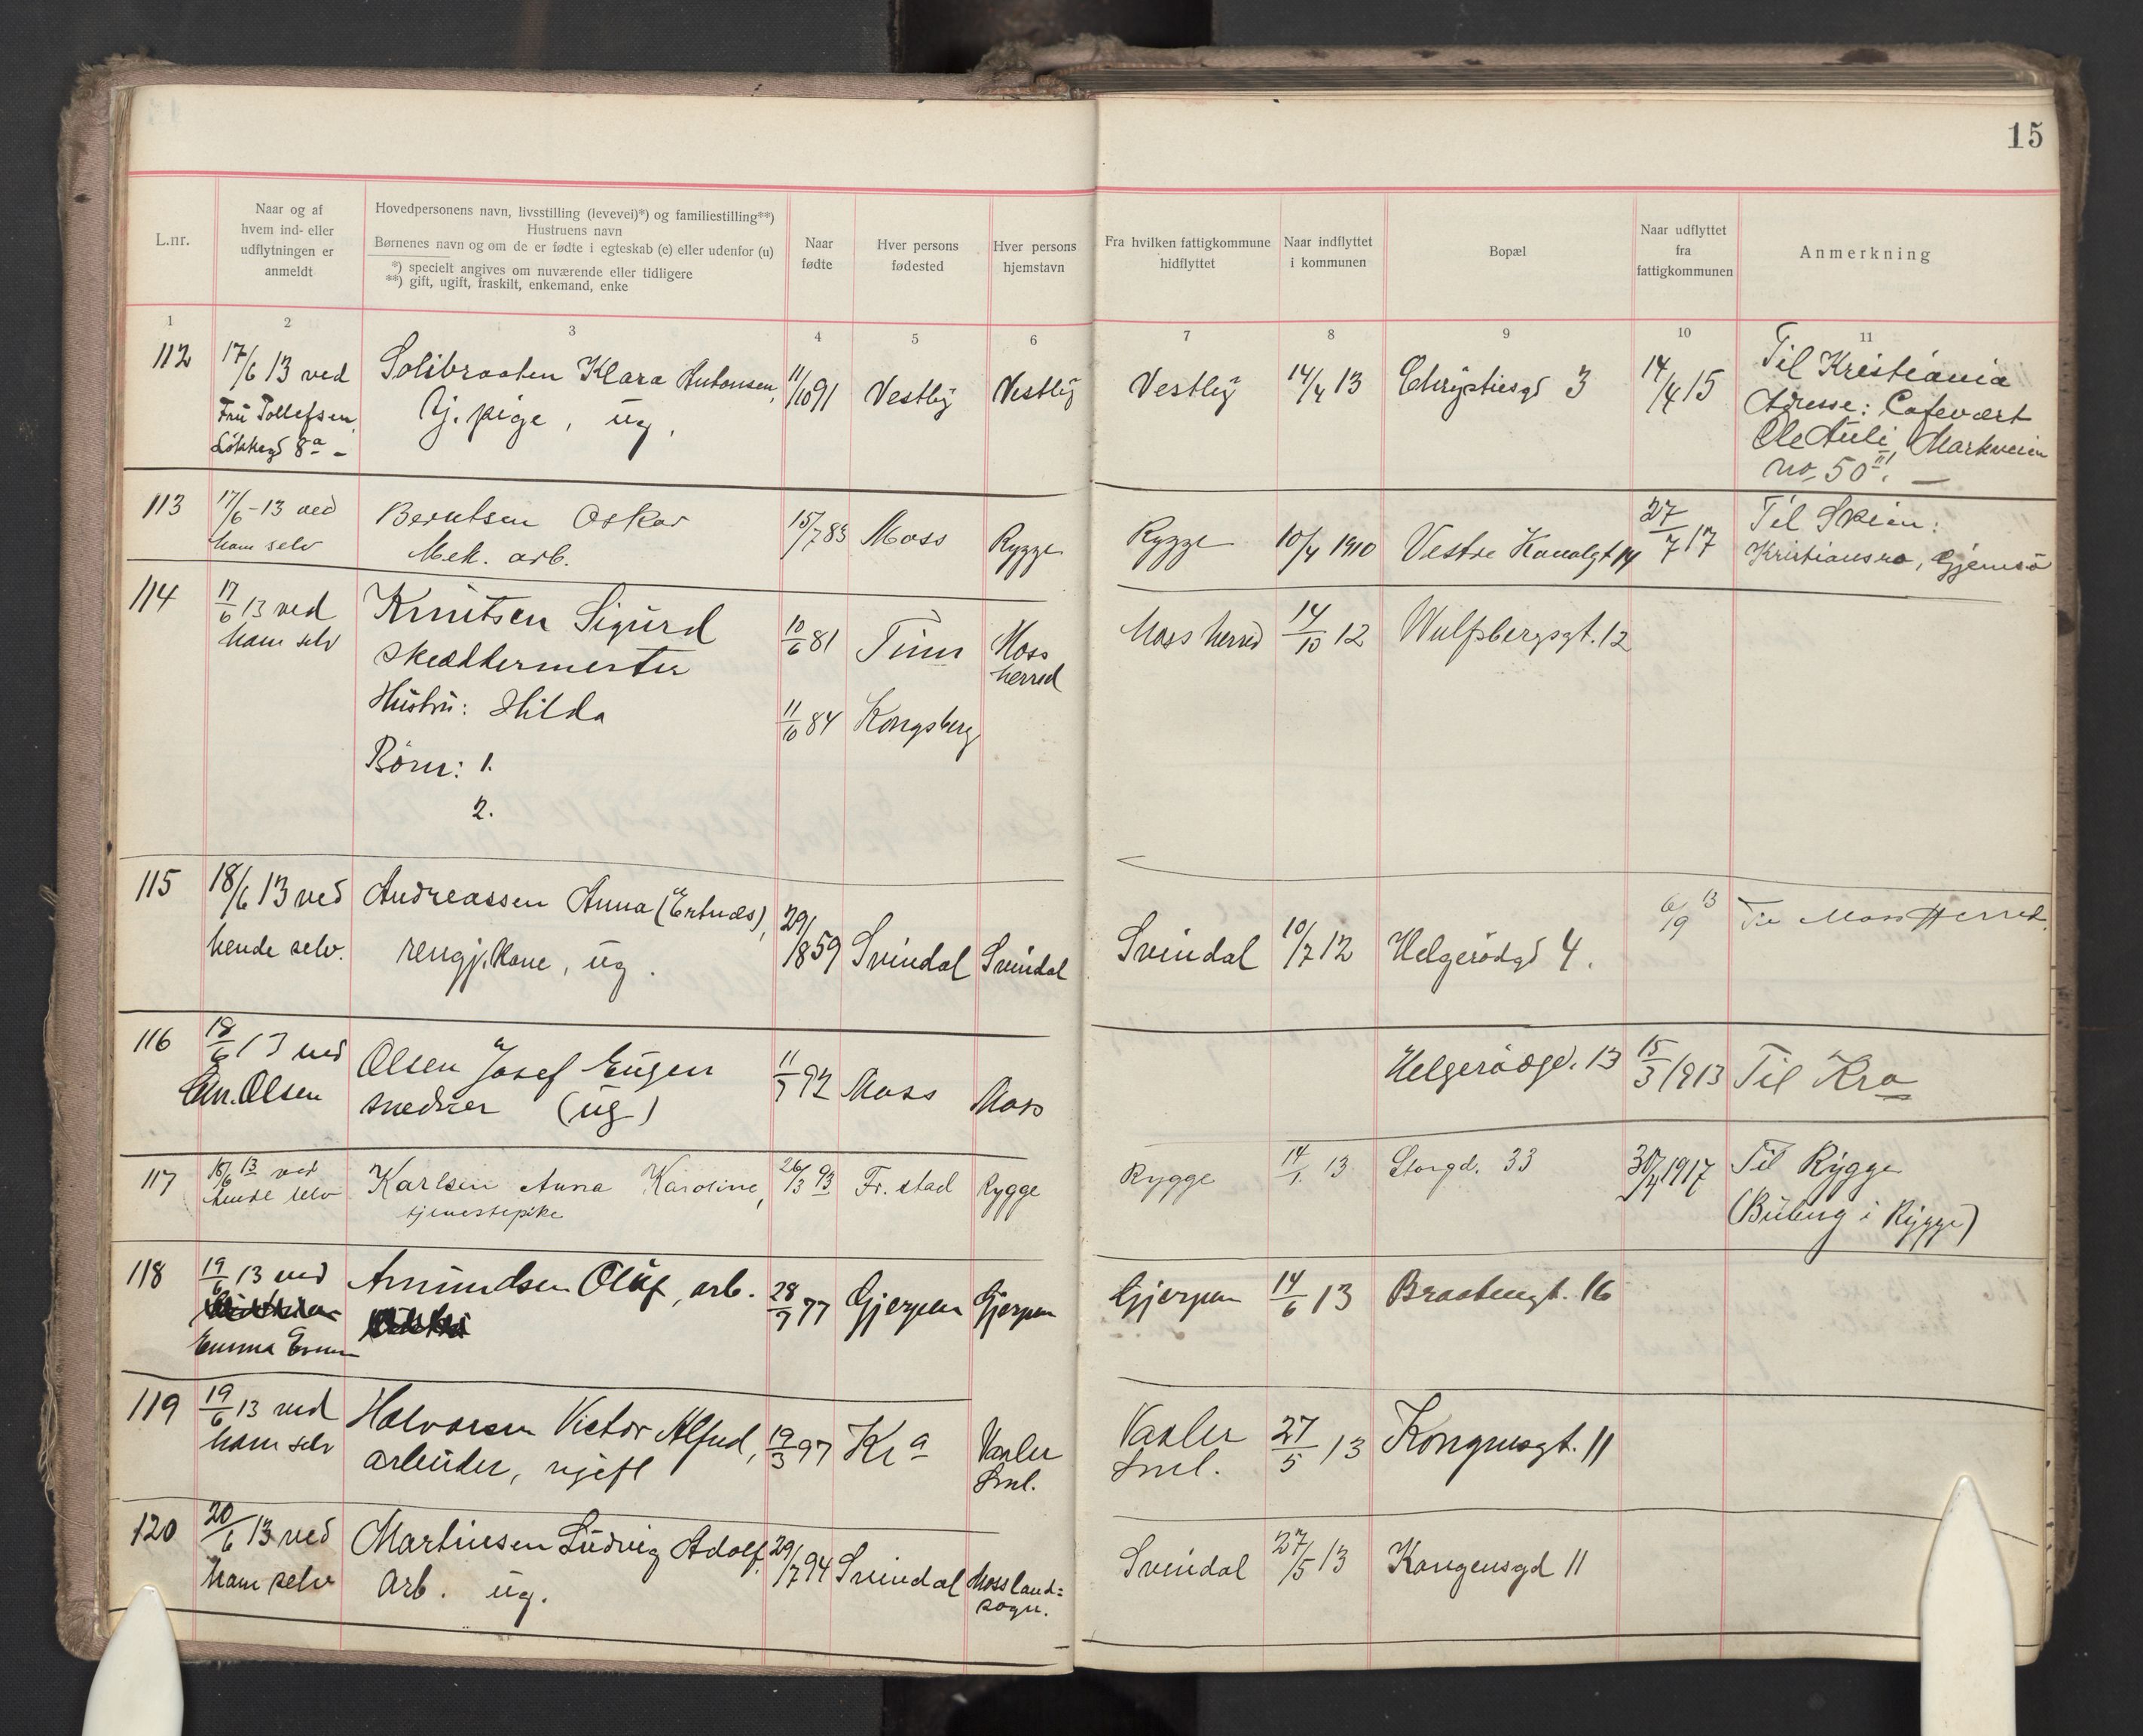 15
L.nr.
Naar og af
hvem ind- eller
udflytningen er
anmeldt
Hovedpersonens navn, livsstilling (levevei)*) og familiestilling**)
Hustruens navn
Børnenes navn og om de er fødte i egteskab (e) eller udenfor (u)
*) specielt angives om nuværende eller tidligere
**) gift, ugift, fraskilt, enkemand, enke
Naar
fødte
Hver persons
fødested
Hver persons
hjemstavn
Fra hvilken fattigkommune
hidflyttet
Naar indflyttet
i kommunen
Bopæl
Naar udflyttet
fra
fattigkommunen
Anmerkning
1 2 3 4 5 6 7 8 9 10 11
112
17/6 13 ved
Fru Tollefsen,
Løkkegd 8a
Solibraaten Klara Antonsen,
Tj. pige, ug.
11/10 91
Vestby
Vestby
Vestby
14/4 13
Chrystiesgd 3
14/4 15
Til Kristiania
Adresse: Cafevært
Ole Auli, Markveien
no 50 III.
113
17/6 - 13 ved
ham selv
Berntsen Oskar
Mek. arb.
15/7 83
Moss
Rygge
Rygge
10/4 1910
Vestre Kanalgt 14
27/7 17
Til Skien:
Kristiansro, Gjemsø
114
17/6 13 ved
ham selv
Knutsen Sigurd
skræddermester
Hustru: Hilda
Børn: 1.
2.
10/6 81
Tinn
Moss
herred
11/6 84
Kongsberg
Moss herred
14/10 12
Wulfsbergsgt. 12
115
18/6 13 ved
hende selv.
Andreassen Anna
rengj.kone, ug.
29/1 859
Svindal
Svindal
Svindal
10/7 12
Helgerødgd 4.
6/9 13
Til Moss Herred.
116
18/6 13 ved
Chr. Olsen
Olsen Josef Eugen
snedker (ug)
11/7 92
Moss
Moss
Helgerødgd. 13
15/3 1913
Til Kra
117
18/6 13 ved
hende selv
Karlsen Anna Karoline,
tjenestepike
26/3 93
Fr. stad
Rygge
Rygge
14/1 13
Storgd. 33
30/4 1917
Til Rygge
(Büleng i Rygge)
118
19/6 13 ved
Emma
Amundsen Oluf, arb.
28/7 77
Gjerpen
Gjerpen
Gjerpen
14/6 13
Braatengt. 16
119
19/6 13 ved
ham selv
Halvorsen Victor Alfred,
arbeider, ugift
19/3 97
Kra
Vaaler
Sml.
Vaaler
Sml.
27/5 13
Kongensgt. 11
120
20/6 13 ved
ham selv
Martinsen Ludvig Adolf.
Arb. ug.
29/7 94
Svindal
Moss land=
sogn.
Svindal
27/5 13
Kongensgd 11